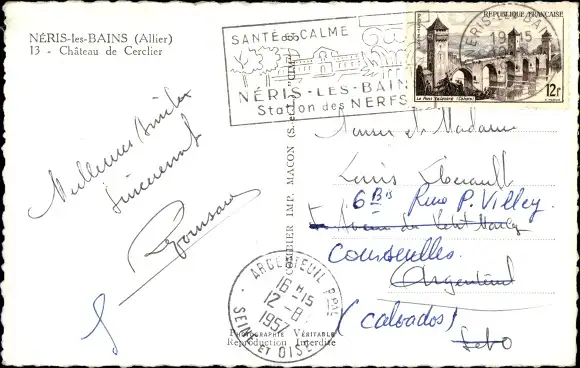 NÉRIS-les-BAINS (Allier)
13 - Château de Cerclier
SANTÉ CALME
NÉRIS-LES-BAINS
Station des NERFS
RÉPUBLIQUE FRANÇAISE
Le Pont Valentré (Cahors)
12F
19-15
COMBIER IMP. MACON (S.-et-L.) "CIM"
Meilleures Amitiés
Sincèrement
Monsieur et Madame
Louis
6 Bis Rue P. Villey
Avenue du Petit
Courseulles
Argenteuil
(Calvados)
ARGENTEUIL PPAL
16 H-15
12-8
1957
SEINE ET OISE
PHOTOGRAPHIE VÉRITABLE
Reproduction Interdite